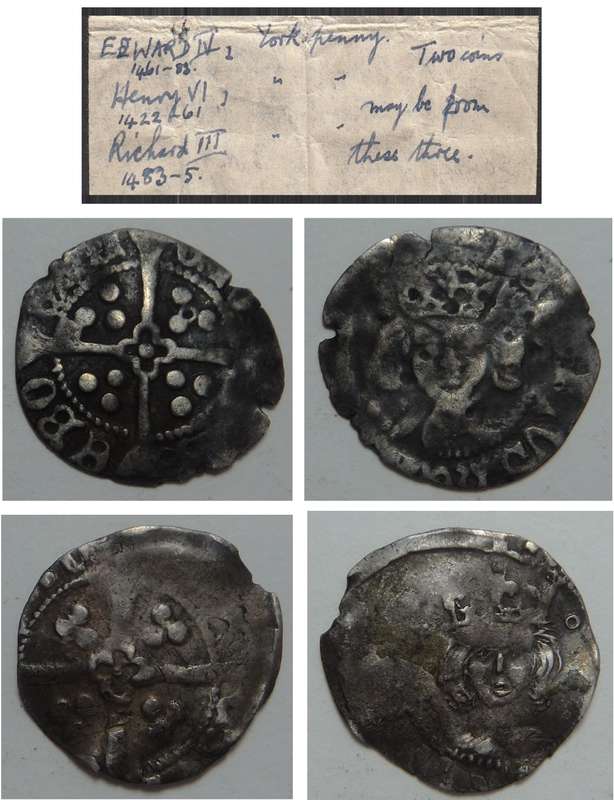 EDWARD IV, York penny. Two coins
1461-83.
Henry VI, " " may be from
1422-61
Richard III " " these three.
1483-5.